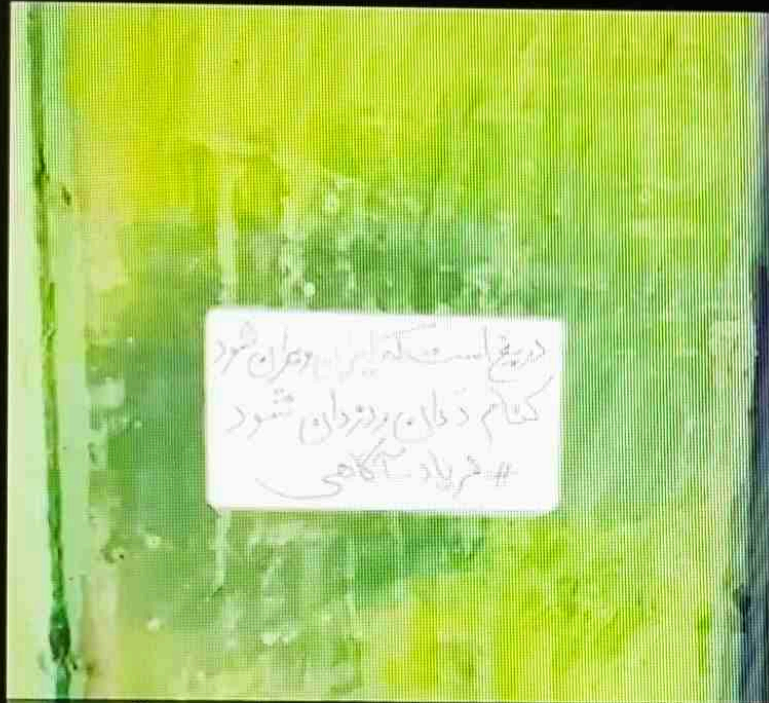 دریغ است که ایران ویران شود
کنام ددان و دزدان شود
# فریاد_آگاهی